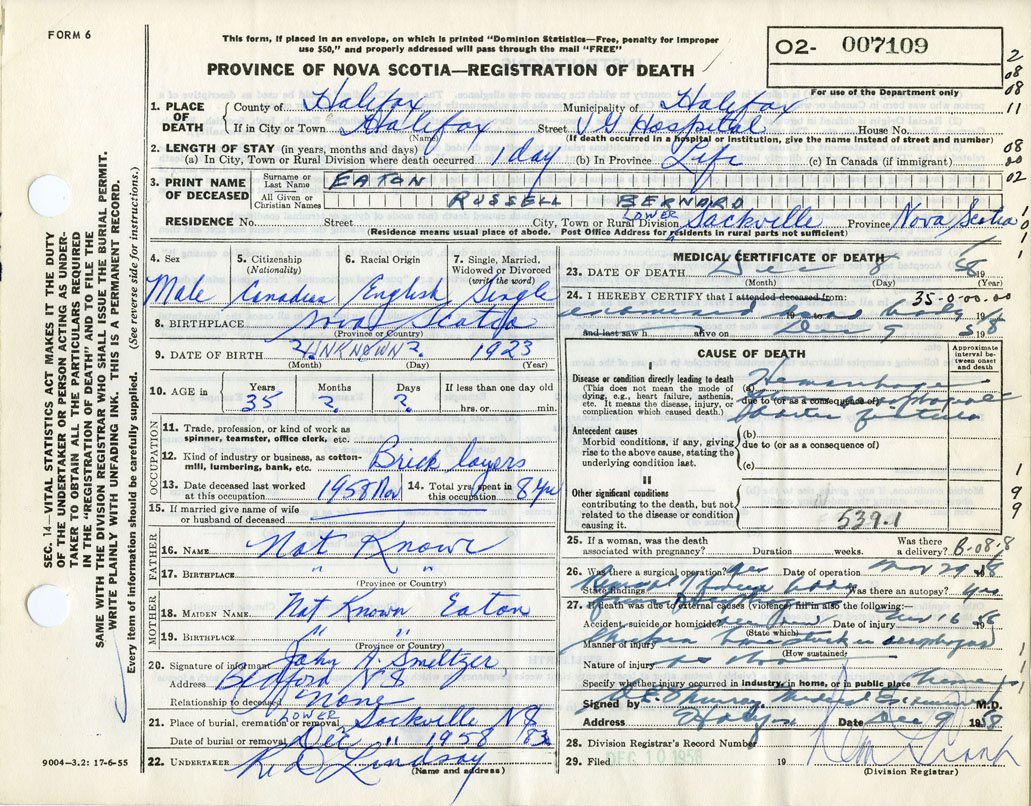 FORM 6
This form, if placed in an envelope, on which is printed "Dominion Statistics—Free, penalty for improper
use $50," and properly addressed will pass through the mail "FREE"
PROVINCE OF NOVA SCOTIA—REGISTRATION OF DEATH
O2- 007109
For use of the Department only
2
08
08
11
08
00
02
1. PLACE OF DEATH
County of Halifax Municipality of Halifax
If in City or Town Halifax Street V G Hospital House No.
(Name) (If death occurred in a hospital or institution, give the name instead of street and number)
2. LENGTH OF STAY (in years, months and days)
(a) In City, Town or Rural Division where death occurred 1 day (b) In Province Life (c) In Canada (if immigrant)
3. PRINT NAME OF DECEASED
Surname or Last Name EATON
All Given or Christian Names RUSSELL BERNARD
RESIDENCE No. Street City, Town or Rural Division LOWER Sackville Province Nova Scotia
(Residence means usual place of abode. Post Office Address for residents in rural parts not sufficient)
4. Sex 5. Citizenship (Nationality) 6. Racial Origin 7. Single, Married, Widowed or Divorced (write the word)
Male Canadian English Single
8. BIRTHPLACE Nova Scotia
(Province or Country)
9. DATE OF BIRTH ? UNKNOWN ? 1923
(Month) (Day) (Year)
10. AGE in Years 35 Months ? Days ? If less than one day old hrs. or min.
OCCUPATION
11. Trade, profession, or kind of work as spinner, teamster, office clerk, etc.
12. Kind of industry or business, as cotton-mill, lumbering, bank, etc. Brick layers
13. Date deceased last worked at this occupation 1958 Nov 14. Total yrs. spent in this occupation 8 yrs
15. If married give name of wife or husband of deceased
FATHER
16. NAME Not Known
17. BIRTHPLACE " "
(Province or Country)
MOTHER
18. MAIDEN NAME Not Known Eaton
19. BIRTHPLACE " "
(Province or Country)
20. Signature of informant John A. Smeltzer
Address Bedford N S
Relationship to deceased None
21. Place of burial, cremation or removal LOWER Sackville N S
Date of burial or removal Dec " 1958
22. UNDERTAKER Lindsay
(Name and address)
MEDICAL CERTIFICATE OF DEATH
23. DATE OF DEATH Dec 8 1958
(Month) (Day) (Year)
24. I HEREBY CERTIFY that I attended deceased from: 35-0-00.00
examined dead body
and last saw h alive on Dec 9 1958
CAUSE OF DEATH
Approximate interval between onset and death
I
Disease or condition directly leading to death
(This does not mean the mode of dying, e.g., heart failure, asthenia, etc. It means the disease, injury, or complication which caused death.)
(a) Hemorrhage
due to (or as a consequence of)
Antecedent causes
Morbid conditions, if any, giving rise to the above cause, stating the underlying condition last.
(b)
due to (or as a consequence of)
(c)
II
Other significant conditions
contributing to the death, but not related to the disease or condition causing it.
539.1
1
9
9
25. If a woman, was the death associated with pregnancy? Duration weeks. Was there a delivery? B-08-8
26. Was there a surgical operation? yes Date of operation Nov 29 58
State findings Removal of foreign body Was there an autopsy? yes
27. If death was due to external causes (violence) fill in also the following:—
Accident, suicide or homicide Date of injury Nov 16 1958
(State which)
Manner of injury
(How sustained)
Nature of injury as above
Specify whether injury occurred in industry, in home, or in public place
Signed by Medical Examiner M.D.
Address Halifax Date Dec 9 1958
28. Division Registrar's Record Number
29. Filed DEC 10 1958 19
(Division Registrar)
SEC. 14—VITAL STATISTICS ACT MAKES IT THE DUTY
OF THE UNDERTAKER OR PERSON ACTING AS UNDER-
TAKER TO OBTAIN ALL THE PARTICULARS REQUIRED
IN THE "REGISTRATION OF DEATH" AND TO FILE THE
SAME WITH THE DIVISION REGISTRAR WHO SHALL ISSUE THE BURIAL PERMIT.
WRITE PLAINLY WITH UNFADING INK. THIS IS A PERMANENT RECORD.
Every item of Information should be carefully supplied. (See reverse side for instructions.)
9004—3.2: 17-6-55